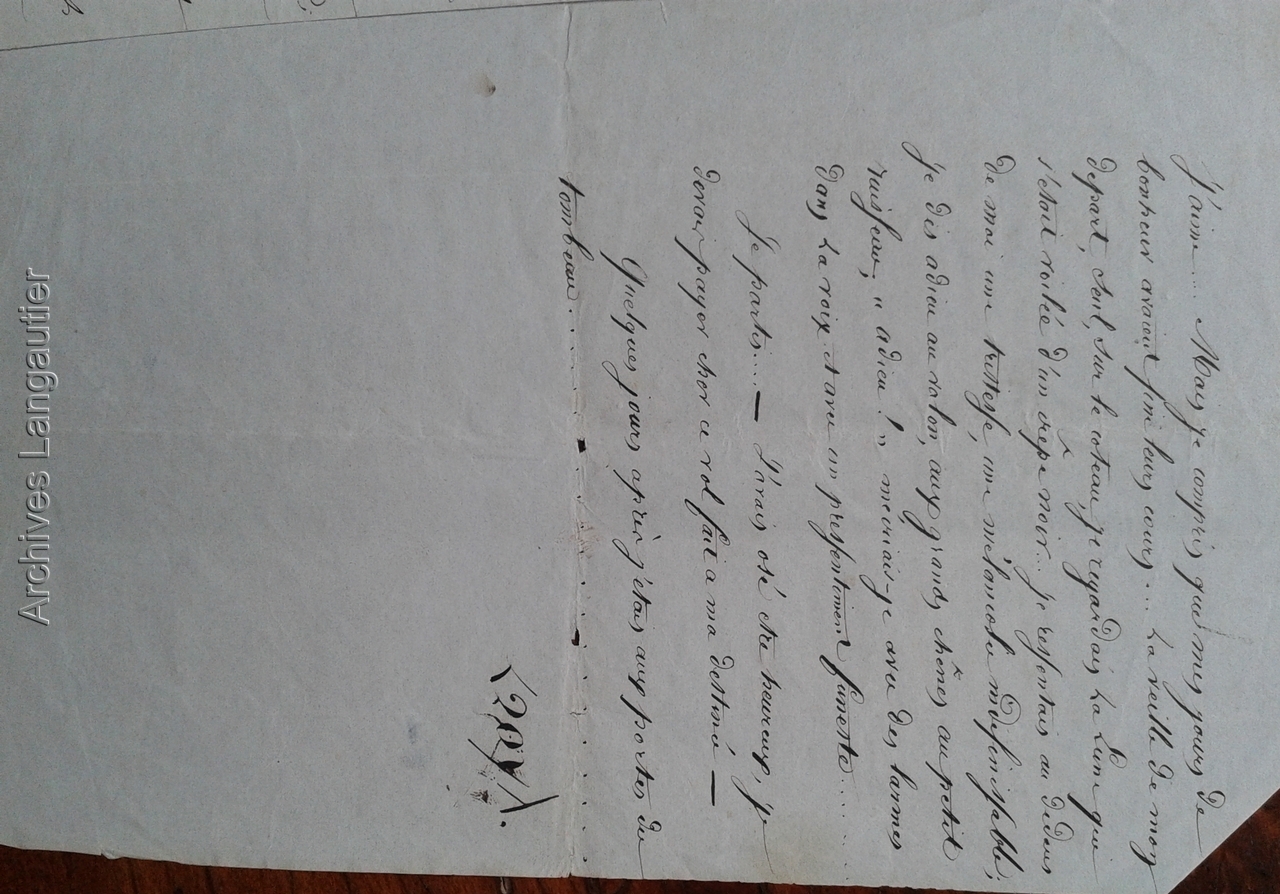 J'aime.... Mais je compris que mes jours de
bonheur avaient fini leurs cours... La veille de mon
depart, seul, sur le coteau, je regardais la Lune qui
s'était voilée d'un crêpe noir... je ressentais au dedans
de moi une tristesse, une mélancolie indéfinissable;
je dis adieu au vallon, aux grands chênes au petit
ruisseau; "adieu!" m'écriais-je avec des larmes
dans la voix et avec un pressentiment funeste.....
Je partis...— J'avais osé être heureux, je
devais payer cher ce vol fait a ma destiné—
Quelques jours après j'étais aux portes du
tombeau.....
Archives Langautier